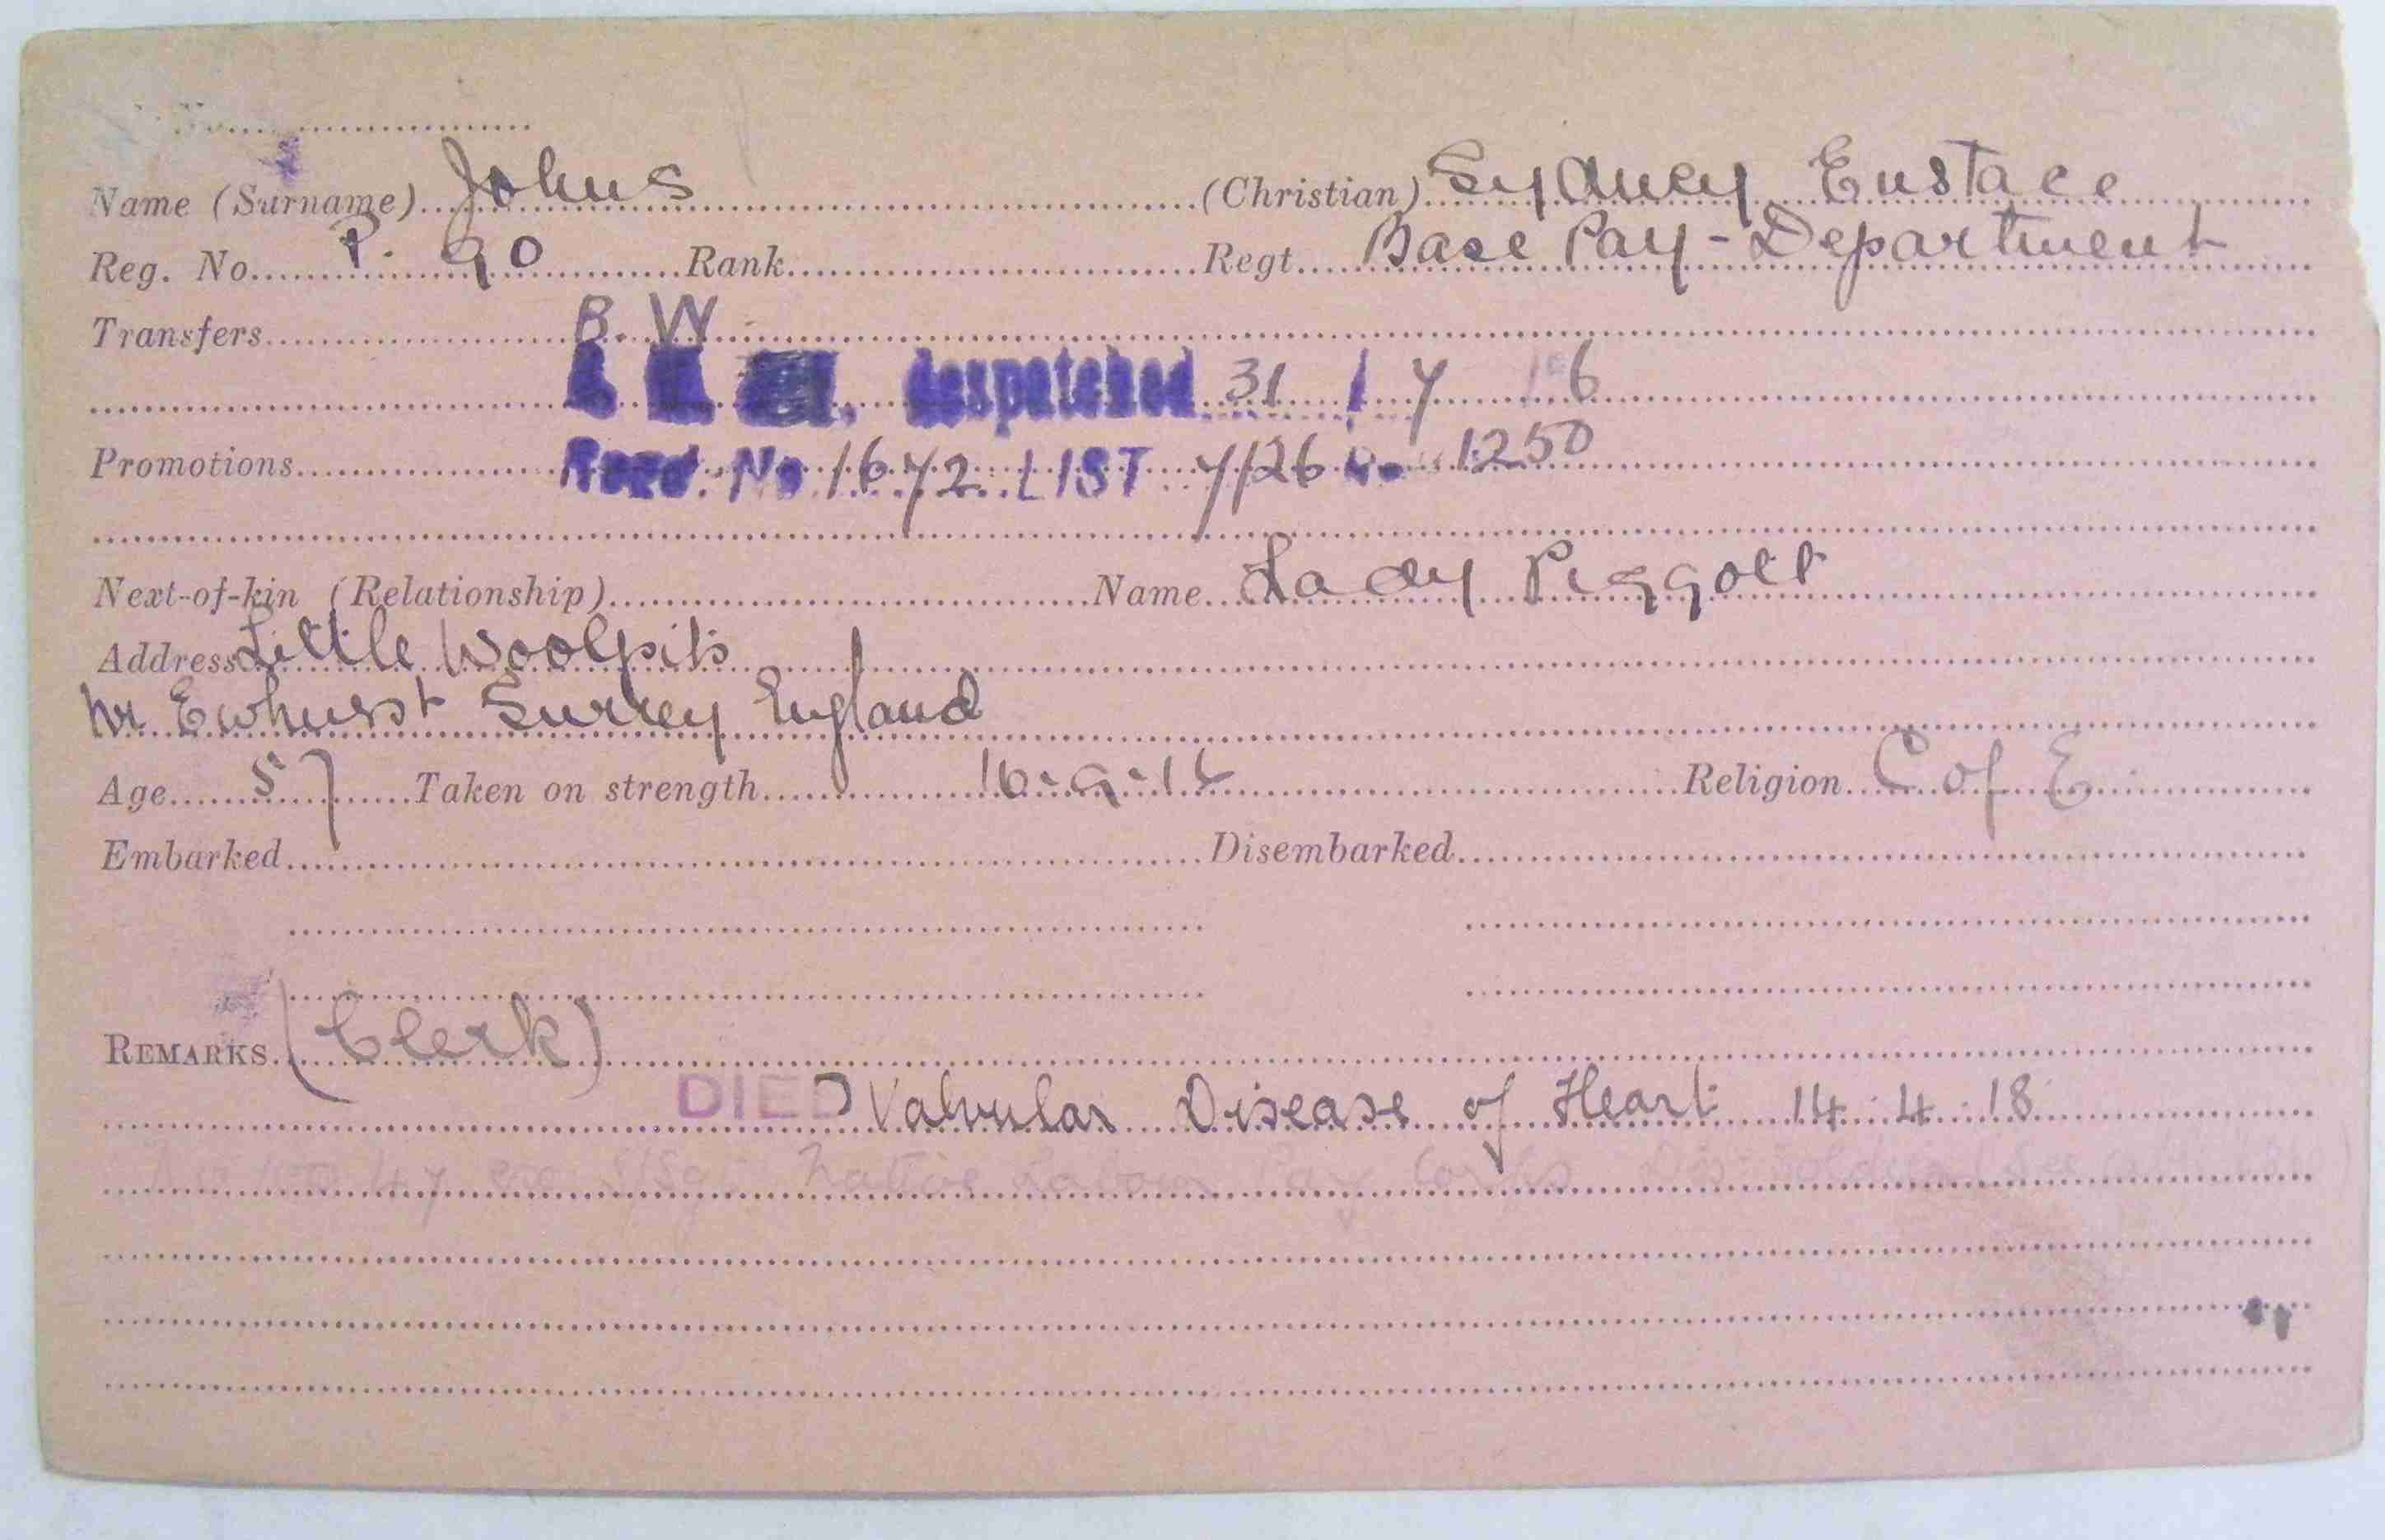 Name (Surname) Johns (Christian) Sydney Eustace
Reg. No. P. 90 Rank Regt. Base Pay-Department
Transfers B. W.
despatched 31 7 6
Promotions Recd. No 1672 LIST 7/26 1250
Next-of-kin (Relationship) Name Lady Piggott
Address Little Woolpits
nr Ewhurst Surrey England
Age 57 Taken on strength 16-9-16 Religion C of E
Embarked Disembarked
REMARKS (Clerk)
DIED Valvular Disease of Heart 14.4.18
Native Labour Pay Corps